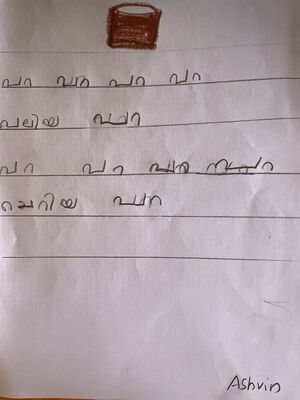 പറ പറ പറ പറ
വലിയ പറ
പറ പറ പറ പറ
ചെറിയ പറ
Ashvin